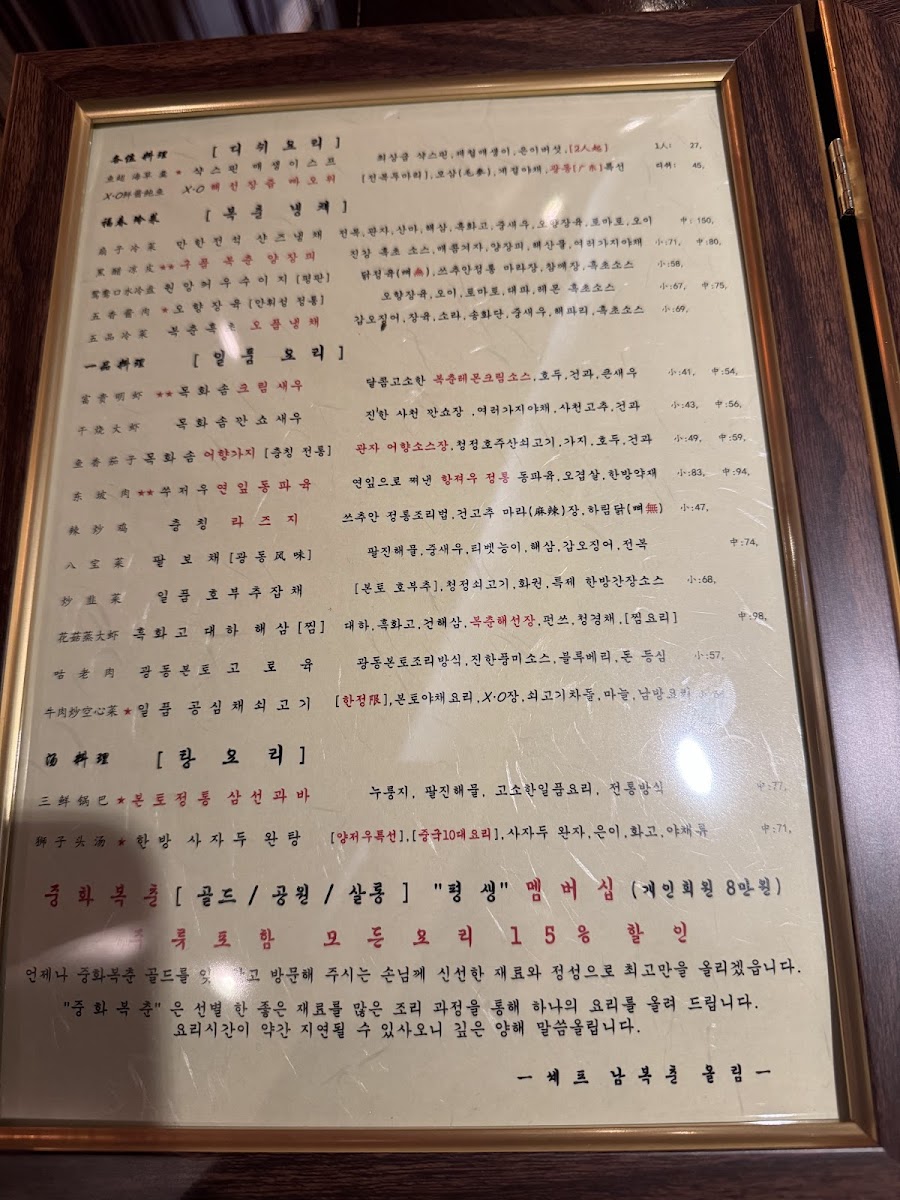 各位料理 [디쉬요리]
鱼翅 海草羹 ★ 샥스핀 매생이스프 최상급 샥스핀,제철매생이,은이버섯,[2人起] 1人: 27,
X·O轩酱鲍鱼 X·O 해선장즙 빠오위 [전복투마리],모삼(毛參),계절야채,광동[广东]특선 디쉬: 45,
福春冷菜 [복춘 냉채]
扇子冷菜 만한전석 산즈냉채 전복,관자,산마,해삼,흑화고,중새우,오향장육,토마토,오이 中:150,
黑醋凉皮 ★★구품 복춘 양장피 진참 흑초 소스,매콤겨자,양장피,해산물,여러가지야채 小:71, 中:80,
鸳鸯口水冷盘 원앙허우수이지[평판] 닭정육(뼈無),쓰추안정통 마라장,참깨장,흑초소스 小:58,
五香酱肉 ★오향장육[안휘성 정통] 오향장육,오이,토마토,대파,레몬 흑초소스 小:67, 中:75,
五品冷菜 복춘흑초 오품냉채 갑오징어,장육,소라,송화단,중새우,해파리,흑초소스 小:69,
一品料理 [일품 요리]
富贵明虾 ★★목화솜크림새우 달콤고소한 복춘레몬크림소스,호두,건과,큰새우 小:41, 中:54,
干烧大虾 목화솜깐쇼새우 진한 사천 깐쇼장 ,여러가지야채,사천고추,건과 小:43, 中:56,
鱼香茄子 목화솜어향가지[충칭 전통] 관자 어향소스장,청정호주산쇠고기,가지,호두,건과 小:49, 中:59,
东坡肉 ★★쑤저우연잎동파육 연잎으로 쪄낸 항져우 정통 동파육,오겹살,한방약재 小:83, 中:94,
辣炒鸡 충칭 라즈지 쓰추안 정통조리법,건고추 마라(麻辣)장,하림닭(뼈無) 小:47,
八宝菜 팔보채[광동风味] 팔진해물,중새우,티벳능이,해삼,갑오징어,전복 中:74,
炒韭菜 일품 호부추잡채 [본토 호부추],청정쇠고기,화권,특제 한방간장소스 小:68,
花菇蒸大虾 흑화고 대하 해삼[찜] 대하,흑화고,건해삼,복춘해선장,펀쓰,청경채,[찜요리] 中:98,
咕老肉 광동본토고로육 광동본토조리방식,진한풍미소스,블루베리,돈 등심 小:57,
牛肉炒空心菜 ★일품 공심채쇠고기 [한정限],본토야채요리,X·O장,쇠고기차돌,마늘,남방요리
汤料理 [탕요리]
三鲜锅巴 ★본토정통 삼선과바 누룽지, 팔진해물, 고소한일품요리, 전통방식 中:77,
狮子头汤 ★한방 사자두완탕 [양저우특선],[중국10대요리],사자두 완자,은이,화고,야채류 中:71,
중화복춘[골드/공원/살롱] "평생" 멤버십(개인회원 8만원)
주류포함 모든요리 15% 할인
언제나 중화복춘 골드를 잊 고 방문해 주시는 손님께 신선한 재료와 정성으로 최고만을 올리겠읍니다.
"중화복춘"은 선별 한 좋은 재료를 많은 조리 과정을 통해 하나의 요리를 올려 드립니다.
요리시간이 약간 지연될 수 있사오니 깊은 양해 말씀올립니다.
ー쉐프 남복춘 올림ー